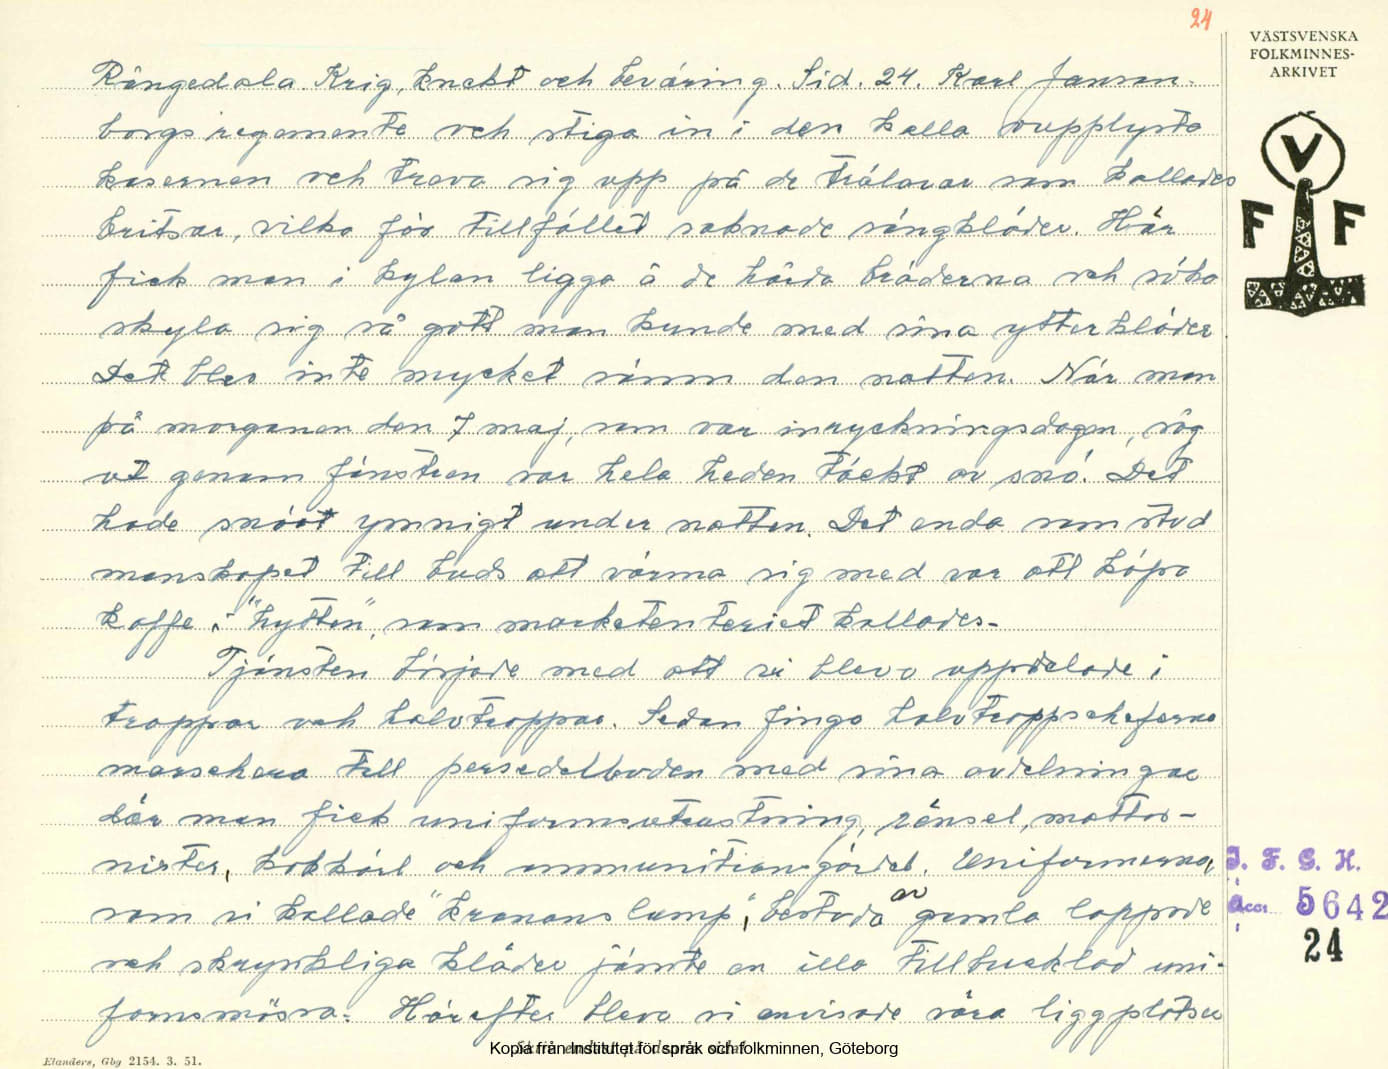 24
VÄSTSVENSKA
FOLKMINNES-
ARKIVET
V
F F
Rångedala. Krig, knekt och beväring. Sid. 24. Karl Janson.
borgs regemente och stiga in i den kalla oupplysta
kasernen och treva sig upp på de trälavar som kallades
britsar, vilka för tillfället saknade sängkläder. Här
fick man i kylan ligga å de hårda bräderna och söka
skyla sig så gott man kunde med sina ytterkläder.
Det blev inte mycket sömn den natten. När man
på morgonen den 7 maj, som var inryckningsdagen, såg
ut genom fönstren var hela heden täckt av snö. Det
hade snöat ymnigt under natten. Det enda som stod
manskapet till buds att värma sig med var att köpa
kaffe i "hyttan", som marketenteriet kallades.
Tjänsten började med att vi blevo uppdelade i
troppar och halvtroppar. Sedan fingo halvtroppscheferna
marschera till persedelboden med sina avdelningar
där man fick uniformsutrustning, ränsel, mattor-
nister, kokkärl och ammunitionsgördel. Uniformerna,
som vi kallade "kronans lump", bestodo av gamla lappade
och skrynkliga kläder jämte en illa tillbucklad uni-
formsmössa. Härefter blevo vi anvisade våra liggplatser
I. F. G. H.
Acc. 5642
24
Kopia från Institutet för språk och folkminnen, Göteborg
Elanders, Gbg 2154. 3. 51.